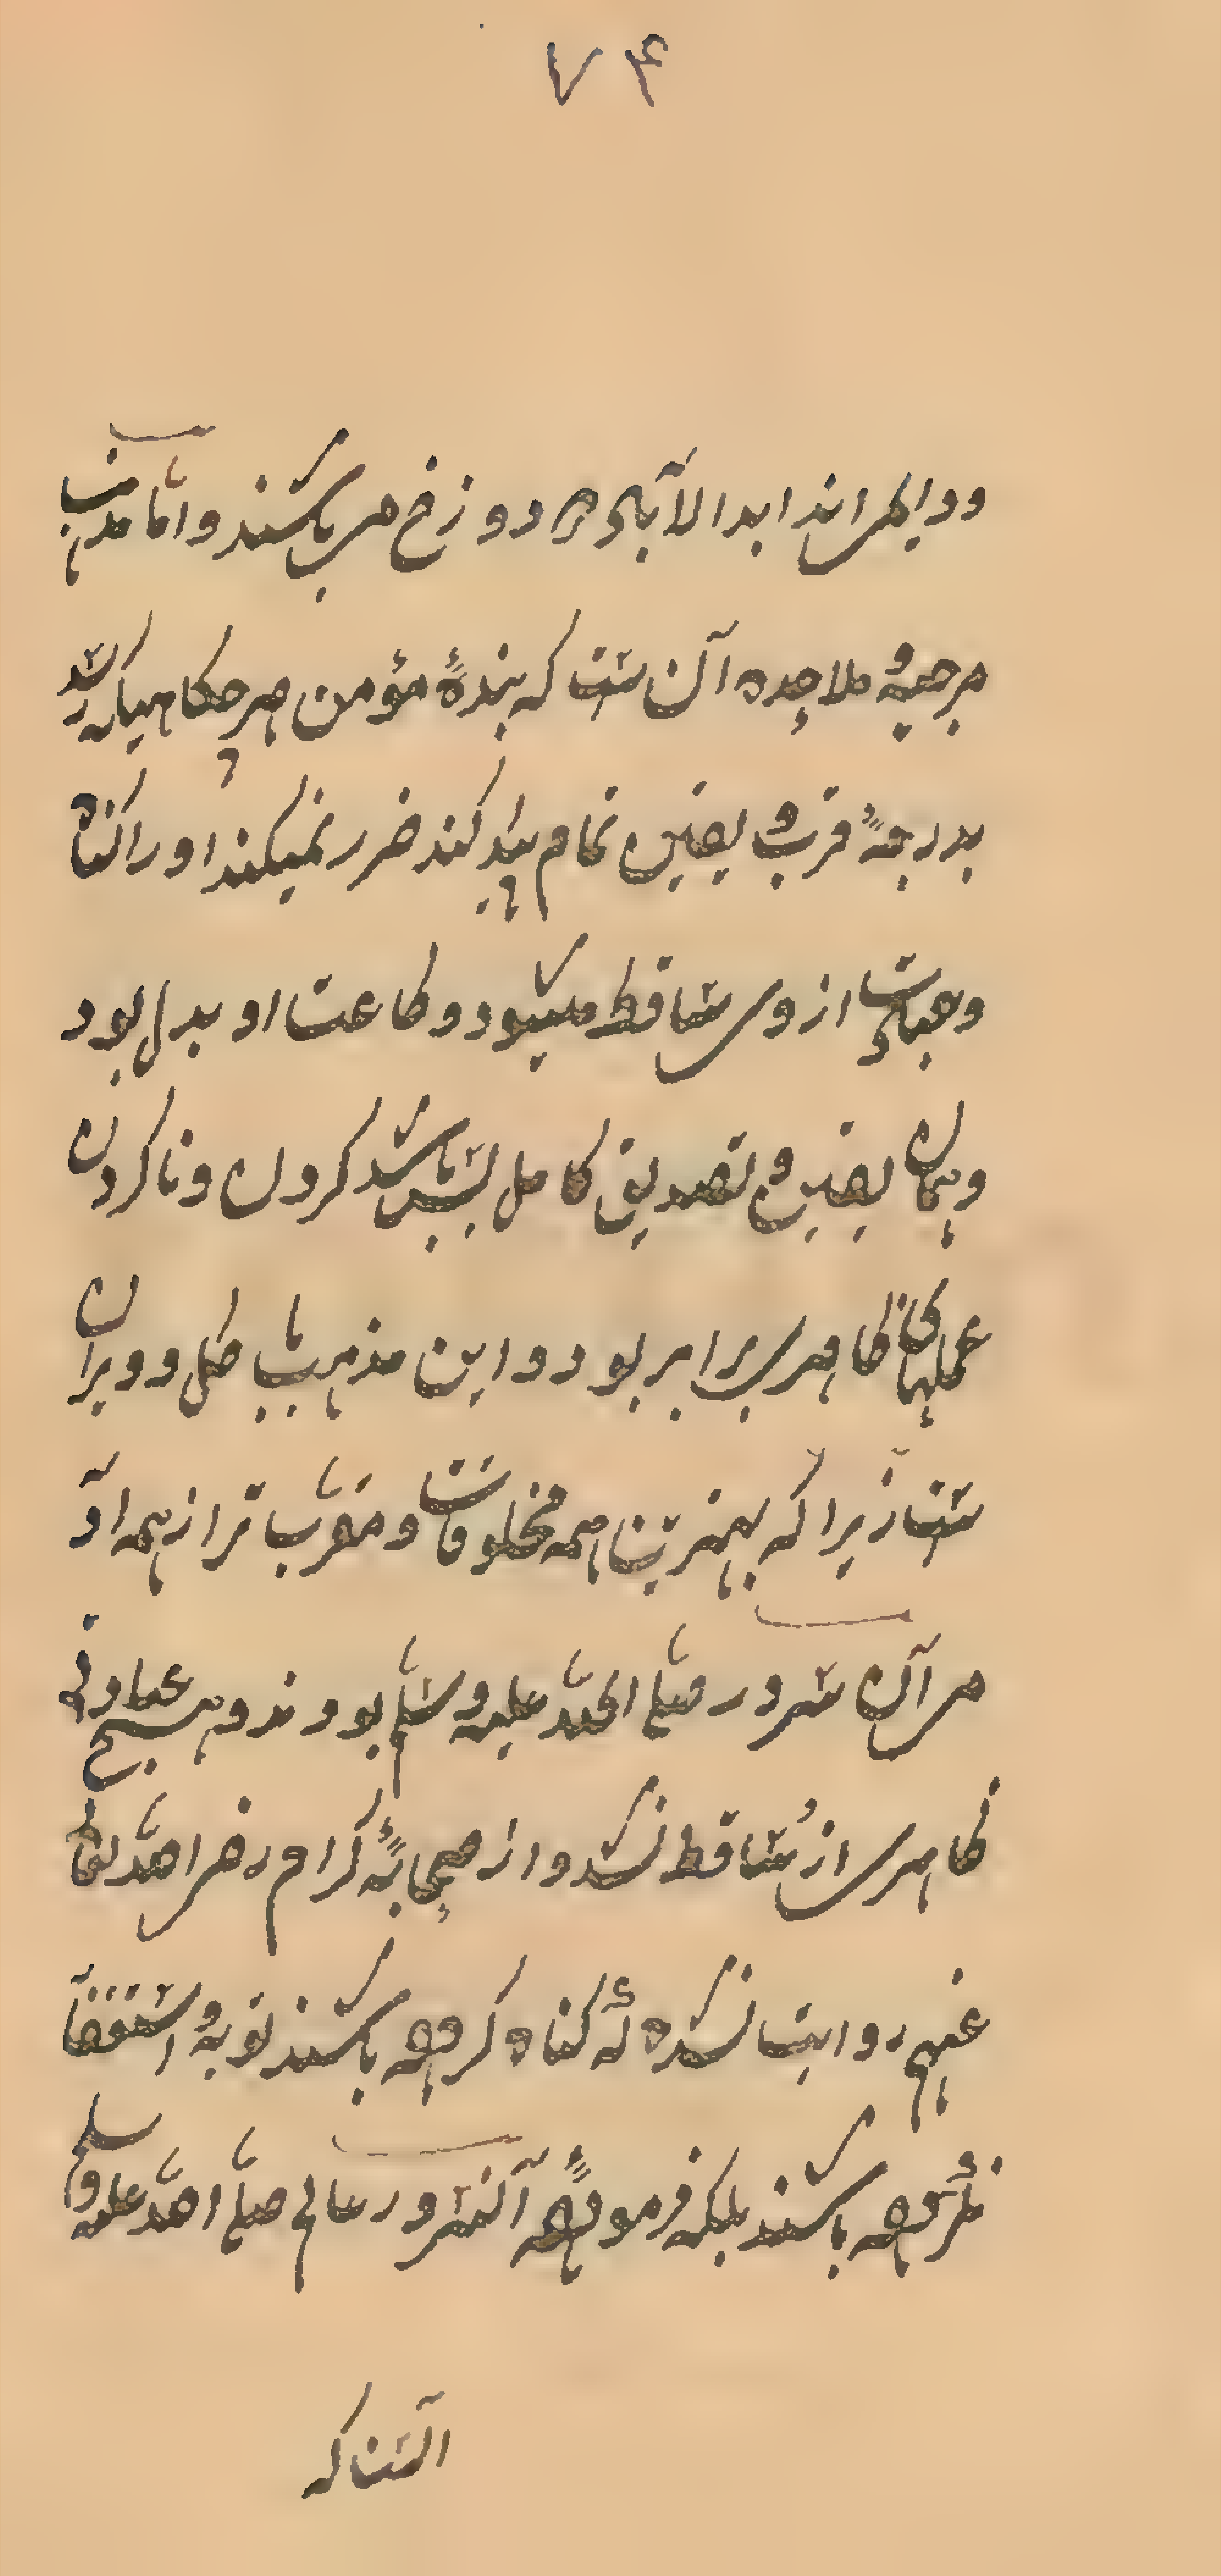 ۷۴
و دایمی اند ابد الآباد در دوزخ می باشند و اما مذهب
مرجیه و ملاحده آن ست که بنده مؤمن هرچکاهیکه رسد
بدرجهٔ قرب و یقین تمام پیدا کند ضرر نمیکند او را گناه
و عبادت از وی ساقط میشود و طاعت او بدل بود
و همان یقین و تصدیق کامل بس باشد کردن و ناکردن
عملهای ظاهری برابر بود و این مذهب باطل و ویران
ست زیرا که بهترین همه مخلوقات و مقرب تر از همه او
مر آن سرور صلی الله علیه وسلم بودند و هیچ عبادتی
ظاهری از و ساقط نشد و از صحابهٔ کرام رضی الله تعالی
عنهم روایت نشده که گناه کرده باشند توبه و استغفار
نکرده باشند بلکه فرمودهٔ آنسرور عالم صلی الله علیه وسلم
آنست که